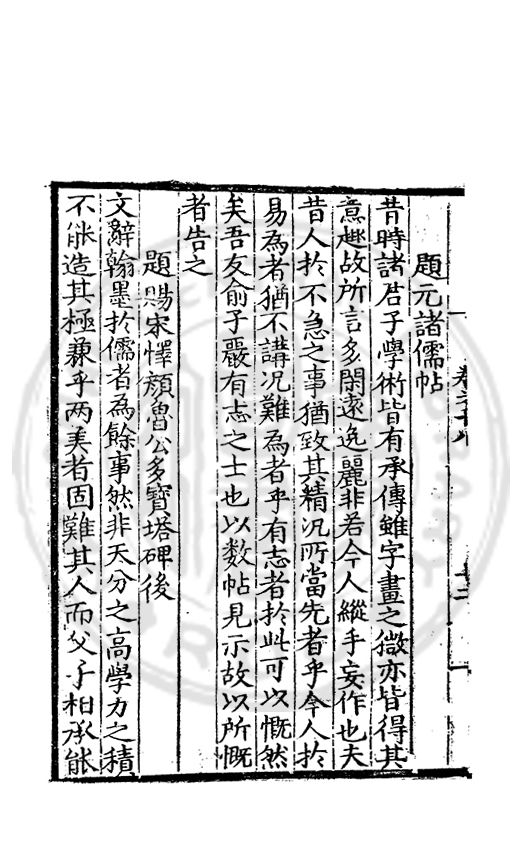 題元諸儒帖
昔時諸君子學術皆有承傳雖字畫之微亦皆得其
意趣故所言多閑遠逸麗非若今人縱手妄作也夫
昔人於不急之事猶致其精况所當先者乎今人於
易為者猶不講况難為者乎有志者於此可以慨然
矣吾友俞子嚴有志之士也以數帖見示故以所慨
者告之
題賜宋懌顏魯公多寶塔碑後
文辭翰墨於儒者為餘事然非天分之高學力之積
不能造其極兼乎两美者固難其人而父子相承能